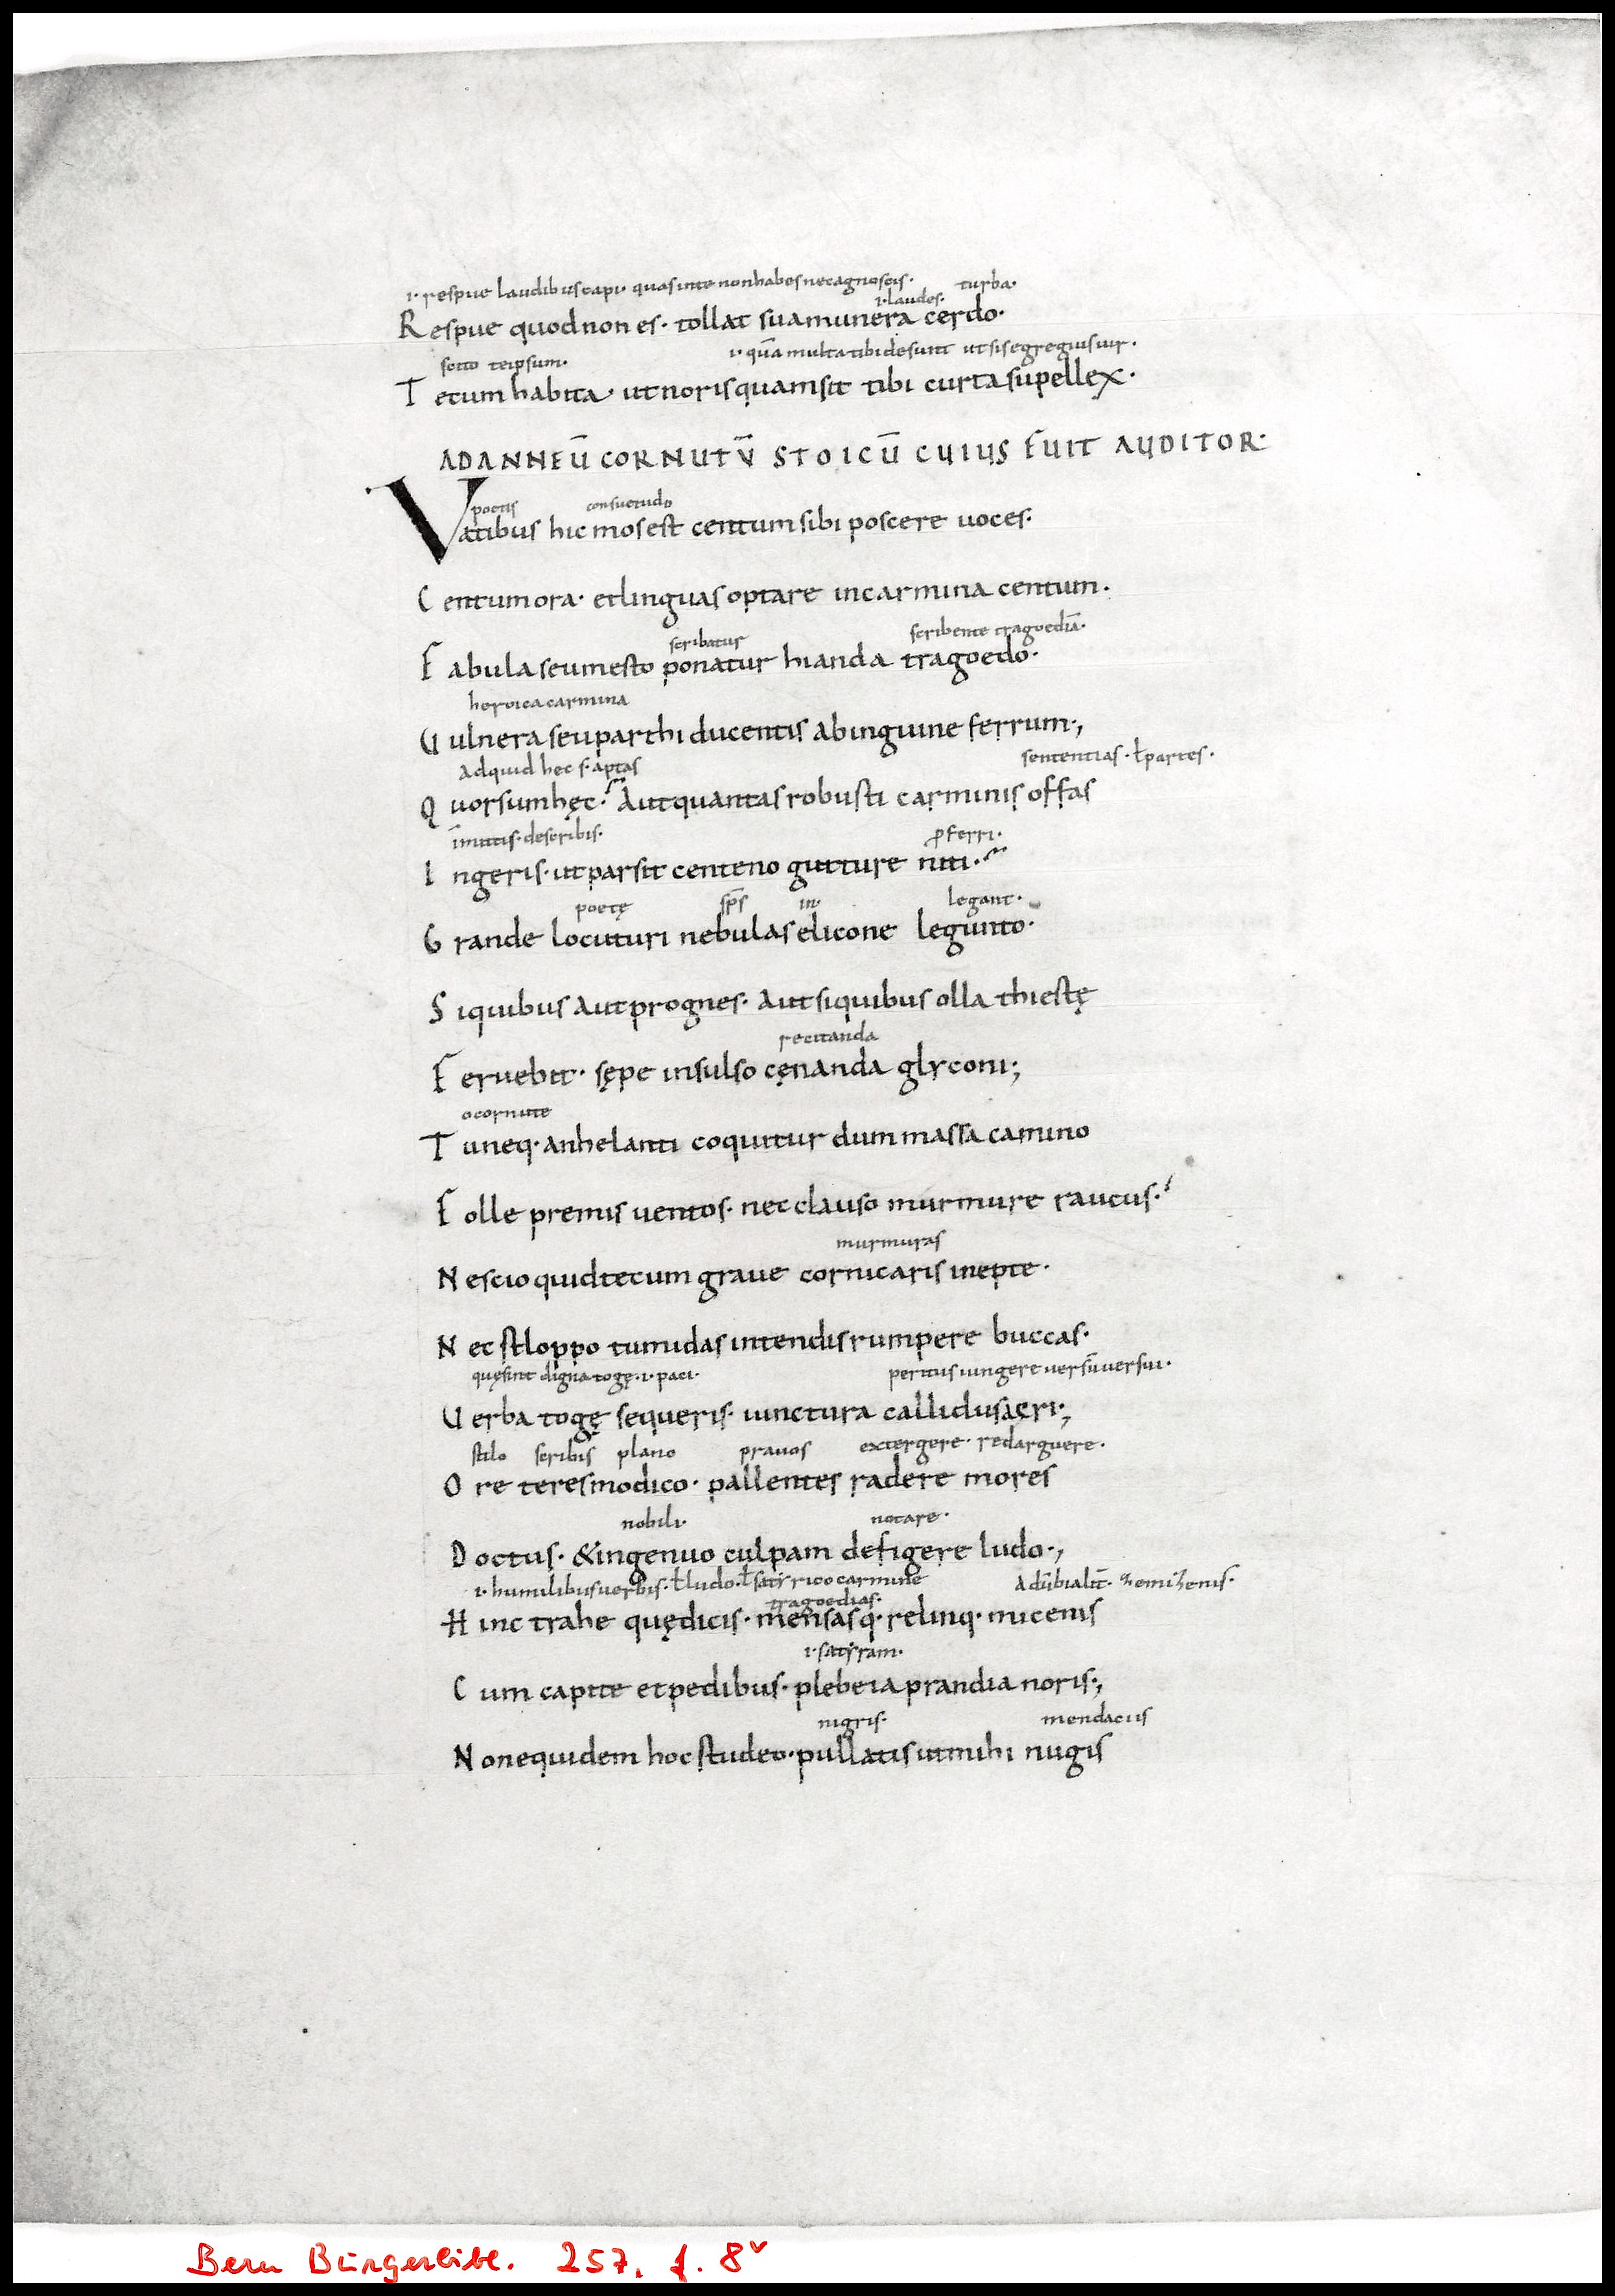 .i. respue laudibus capi. quas in te non habes nec agnoscis. turba.
.i. laudes.
Respue quod non es. tollat sua munera cerdo.
scito teipsum. .i. quā multa tibi desunt ut sis egregius uir.
Tecum habita. ut noris quam sit tibi curta supellex.
AD ANNEŪ CORNUTŪ STOICŪ CUIUS FUIT AUDITOR.
poetis consuetudo
Vatibus hic mos est centum sibi poscere uoces.
Centum ora. et linguas optare in carmina centum.
scribatur scribente tragoediā.
Fabula seu mesto ponatur hianda tragoedo.
heroica carmina
Uulnera seu parthi ducentis ab inguine ferrum.,
Ad quid hec s. aptas sententias. ł partes.
Quorsum hęc? Aut quantas robusti carminis offas
īmittis. describis. pferri.
Ingeris. ut par sit centeno gutture niti?
poetę sps in. legant.
Grande locuturi nebulas elicone legunto.
Si quibus aut prognes. aut si quibus olla thiestę
recitanda
Feruebit. sępe insulso cęnanda glyconi;
o cornute
Tu neq. anhelanti coquitur dum massa camino
Folle premis uentos. nec clauso murmure raucus.
murmuras
Nescio quid tecum graue cornicaris inepte.
Nec stloppo tumidas intendis rumpere buccas.
quę sint digna togę .i. paci. peritus iungere uersū uersui.
Uerba togę sequeris. iunctura callidus acri.,
stilo scribis plano prauos extergere. redarguere.
Ore teres modico. pallentes radere mores
nobili. notare.
Doctus. & ingenuo culpam defigere ludo.,
.i. humilibus uerbis. ł ludo. ł satyrico carmine Aduerbialit.
tragoedias.
Hinc trahe quę dicis. mensasq. relinq. micenis
.i. satyram.
Cum capite et pedibus. plebeia prandia noris.,
nigris. mendaciis
Non equidem hoc studeo. pullatis ut mihi nugis
Bern Bürgerbibl. 257, f. 8v